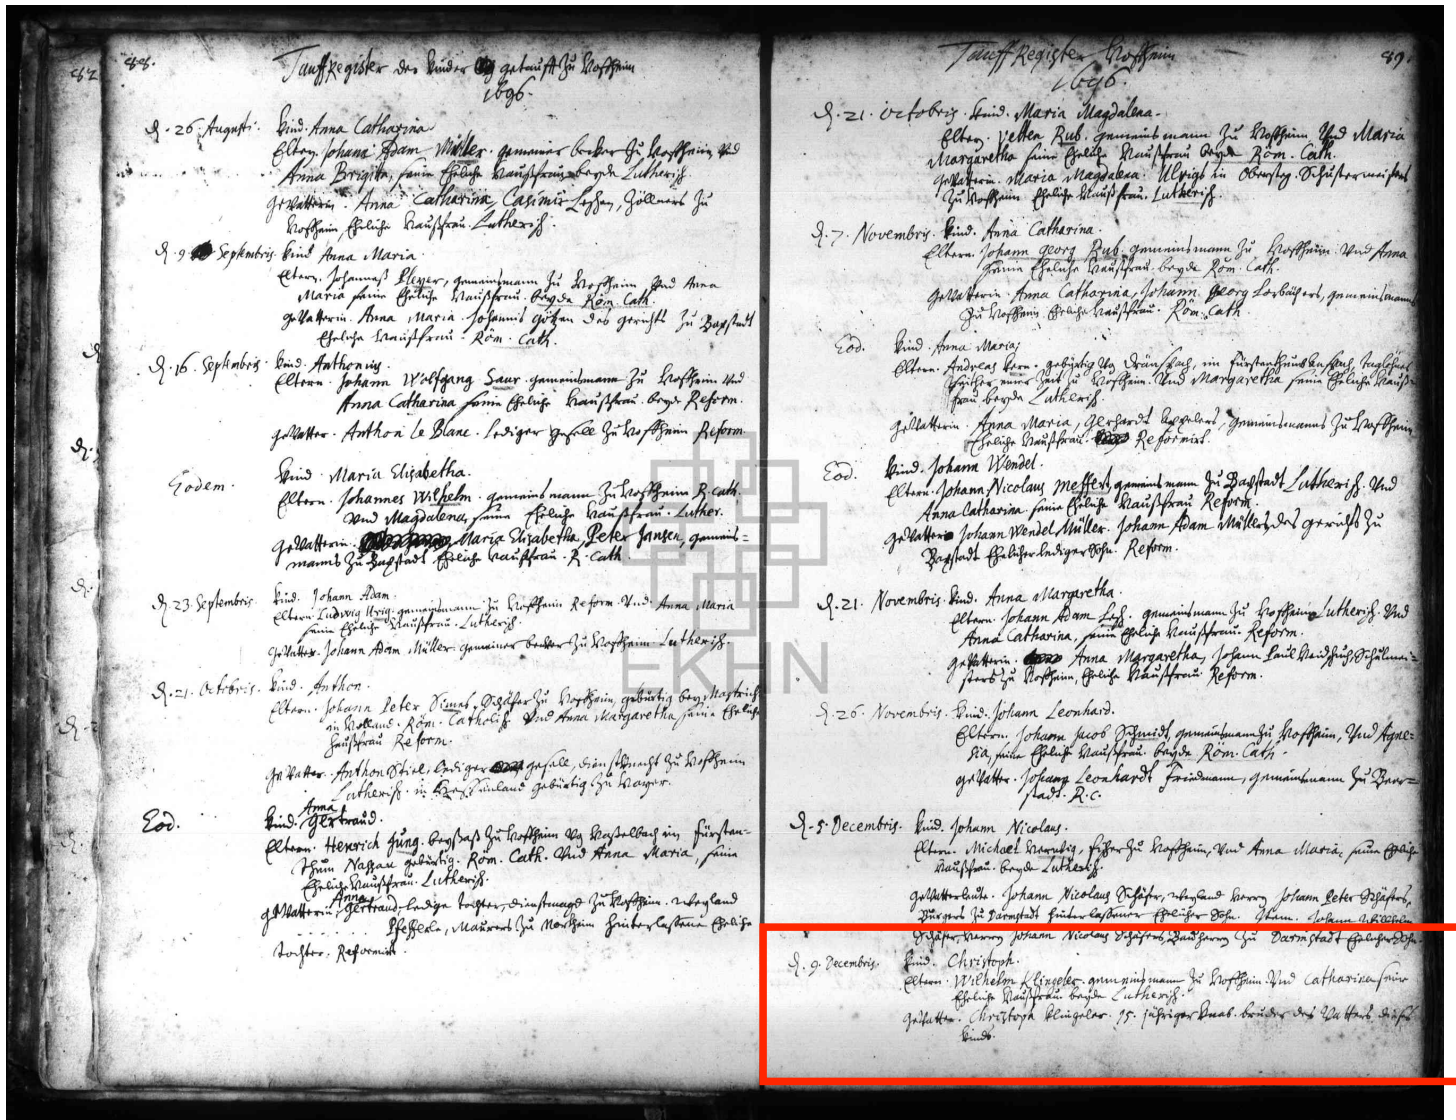 82
88.
Tauff Register der Kinder getaufft zu Hoffheim
1696.
d. 26. Augusti. Kind. Anna Catharina
Eltern. Johann Adam Müller. gemeiner becker zu Hoffheim Und
Anna Brigita, seine Eheliche Haußfrau beyde Lutherisch.
Gevatterin. Anna Catharina, Casimir Zöllners zu
Hoffheim, Eheliche Haußfrau. Lutherisch.
d. 9 Septembris. Kind Anna Maria
Eltern. Johanneß Pleyer, gemeinsmann zu Hoffheim, Und Anna
Maria seine Eheliche Haußfrau. beyde Röm. Cath.
Gevatterin. Anna Maria. Johannis Götzen des gerichts zu
Eheliche Haußfrau. Röm. Cath.
d. 16. Septembris. Kind. Anthonius.
Eltern. Johann Wolfgang Saur. gemeinsmann zu Hoffheim Und
Anna Catharina seine Eheliche Haußfrau. beyde Reform.
Gevatter. Anthon le Blanc. lediger gesell zu Hoffheim Reform.
Eodem. Kind. Maria Elisabetha.
Eltern. Johannes Wilhelm. gemeinsmann zu Hoffheim R. Cath.
Und Magdalena, seine Eheliche Haußfrau. Luther.
Gevatterin. Maria Elisabetha, Peter Jansen, gemeins=
manns zu Eheliche Haußfrau. R. Cath.
d. 23. Septembris. Kind. Johann Adam.
Eltern. Ludwig Urig. gemeinsmann zu Hoffheim Reform. Und Anna Maria
seine Eheliche Haußfrau. Lutherisch.
Gevatter. Johann Adam Müller gemeiner becker zu Hoffheim Lutherisch.
d. 21. Octobris. Kind. Anthon.
Eltern. Johann Peter Simes, Schäfer zu Hoffheim, gebürtig bey Mastrich
in Holland. Röm. Catholisch. Und Anna Margaretha seine Eheliche
Haußfrau Reform.
Gevatter. Anthon Stiel, lediger gesell, dienstknecht zu Hoffheim
Lutherisch. in gebürtig zu
Eod. Kind. Anna Gertraud.
Eltern. Henrich Jung. beysaß zu Hoffheim Von im Fürsten=
thum Nassau gebürtig. Röm. Cath. Und Anna Maria, seine
Eheliche Haußfrau. Lutherisch.
Gevatterin. Anna Gertraud, ledige tochter, dienstmagd zu Hoffheim. weyland
Pfefferle, Maurers zu Northeim hinterlassene Eheliche
tochter. Reformirt.
Tauff Register Hoffheim 89.
1696.
d. 21. Octobris. Kind. Maria Magdalena.
Eltern. Velten Rub. gemeinsmann zu Hoffheim Und Maria
Margaretha seine Eheliche Haußfrau beyde Röm. Cath.
Gevatterin. Maria Magdalena. Ulrich Schustermeisters
zu Hoffheim Eheliche Haußfrau. Lutherisch.
d. 7. Novembris. Kind. Anna Catharina.
Eltern. Johann Georg Rub. gemeinsmann zu Hoffheim. Und Anna
seine Eheliche Haußfrau. beyde Röm. Cath.
Gevatterin. Anna Catharina, Johann Georg Lorbächers, gemeinsmanns
zu Hoffheim Eheliche Haußfrau. Röm. Cath.
Eod. Kind. Anna Maria;
Eltern. Andreas Kern. gebürtig Von im
zu Hoffheim. Und Margaretha seine Eheliche Hauß=
frau beyde Lutherisch.
Gevatterin. Anna Maria, Gerhardt gemeinsmanns zu Hoffheim
Eheliche Haußfrau. Reformirt.
Eod. Kind. Johann Wendel.
Eltern. Johann Nicolaus Meffert, gemeinsmann zu Lutherisch. Und
Anna Catharina seine Eheliche Haußfrau Reform.
Gevatter. Johann Wendel Müller. Johann Adam Müllers, des gerichts zu
Ehelicher lediger Sohn. Reform.
d. 21. Novembris. Kind. Anna Margaretha.
Eltern. Johann Adam Lesch, gemeinsmann zu Hoffheim Lutherisch. Und
Anna Catharina, seine Eheliche Haußfrau. Reform.
Gevatterin. Anna Margaretha, Johann Paul Schulmei=
sters zu Hoffheim, Eheliche Haußfrau Reform.
d. 26. Novembris. Kind. Johann Leonhard.
Eltern. Johann Jacob Schmidt, gemeinsmann zu Hoffheim, Und Agne=
sia, seine Eheliche Haußfrau beyde Röm. Cath.
Gevatter. Johann Leonhardt Friedmann, gemeinsmann zu
stadt. R. C.
d. 5. Decembris. Kind. Johann Nicolaus.
Eltern. Michael zu Hoffheim, Und Anna Maria, seine Eheliche
Haußfrau. beyde Lutherisch.
Gevatterleute. Johann Nicolaus Schäfer, weyland Herrn Johann Peter Schäfers,
Bürgers zu Darmstadt hinterlassener Ehelicher Sohn. Item. Johann Willhelm
Schäfer, Herrn Johann Nicolaus Schäfers, Bauherrn zu Darmstadt Ehelicher Sohn.
d. 9. Decembris. Kind. Christoph.
Eltern. Wilhelm Klingeler. gemeinsmann zu Hoffheim. Und Catharina seine
Eheliche Haußfrau beyde Lutherisch.
Gevatter. Christoph Klingeler. 15. jähriger Knab. bruder des Vatters dieses
Kinds.
EKHN